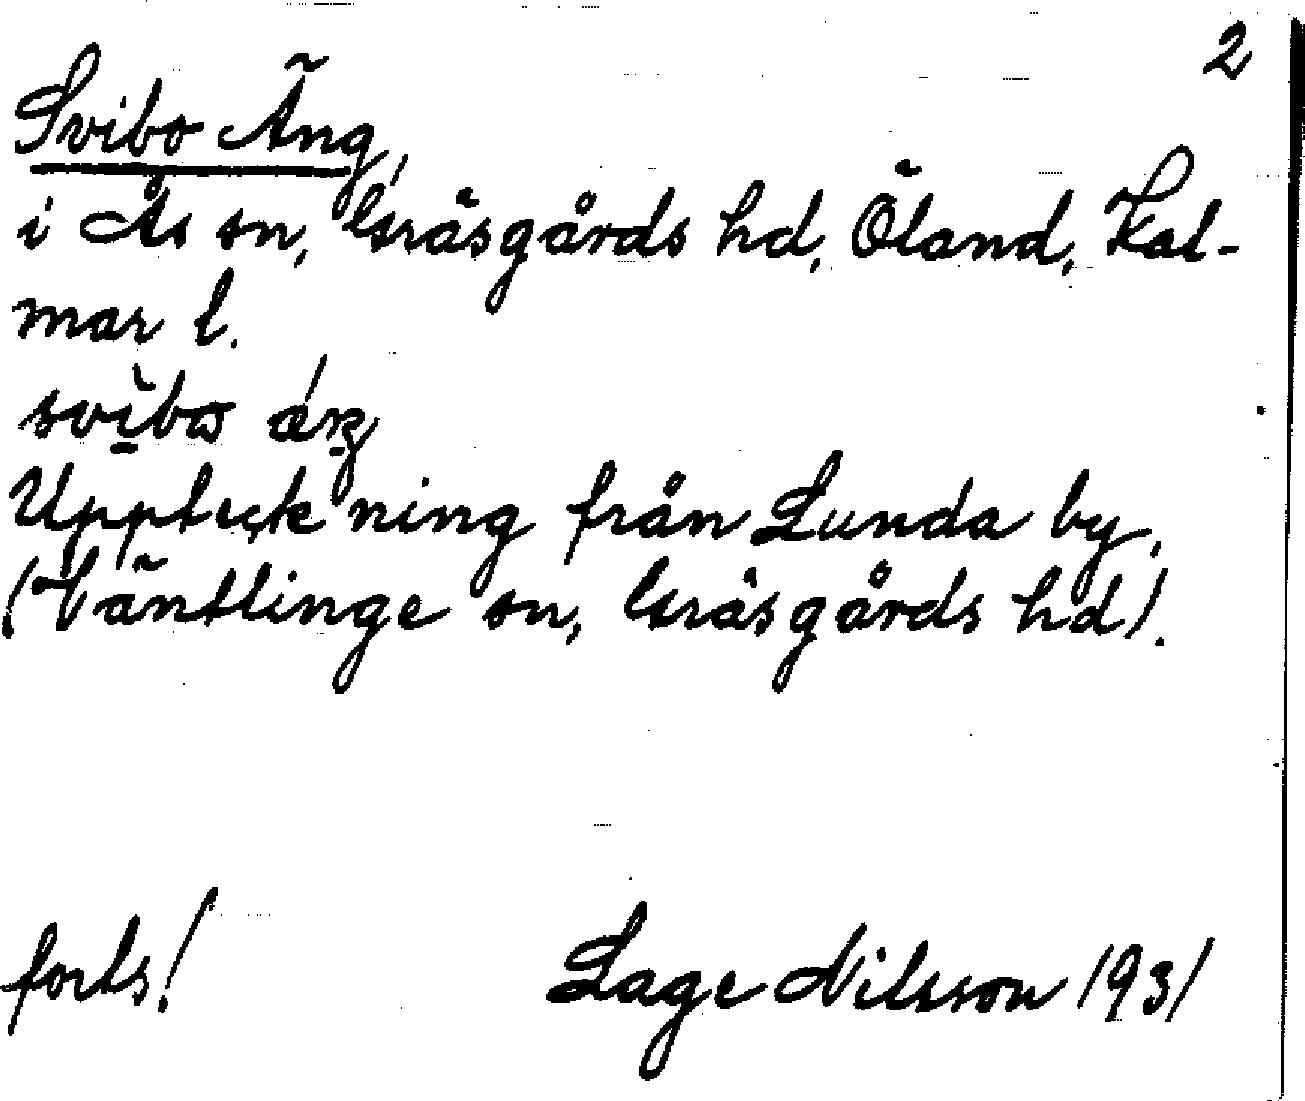 2
Svibo Äng,
i Ås sn, Gräsgårds hd, Öland, Kal-
mar l.
Uppteckning från Lunda by,
(Väntlinge sn, Gräsgårds hd).
forts! Lage Nilsson 1931